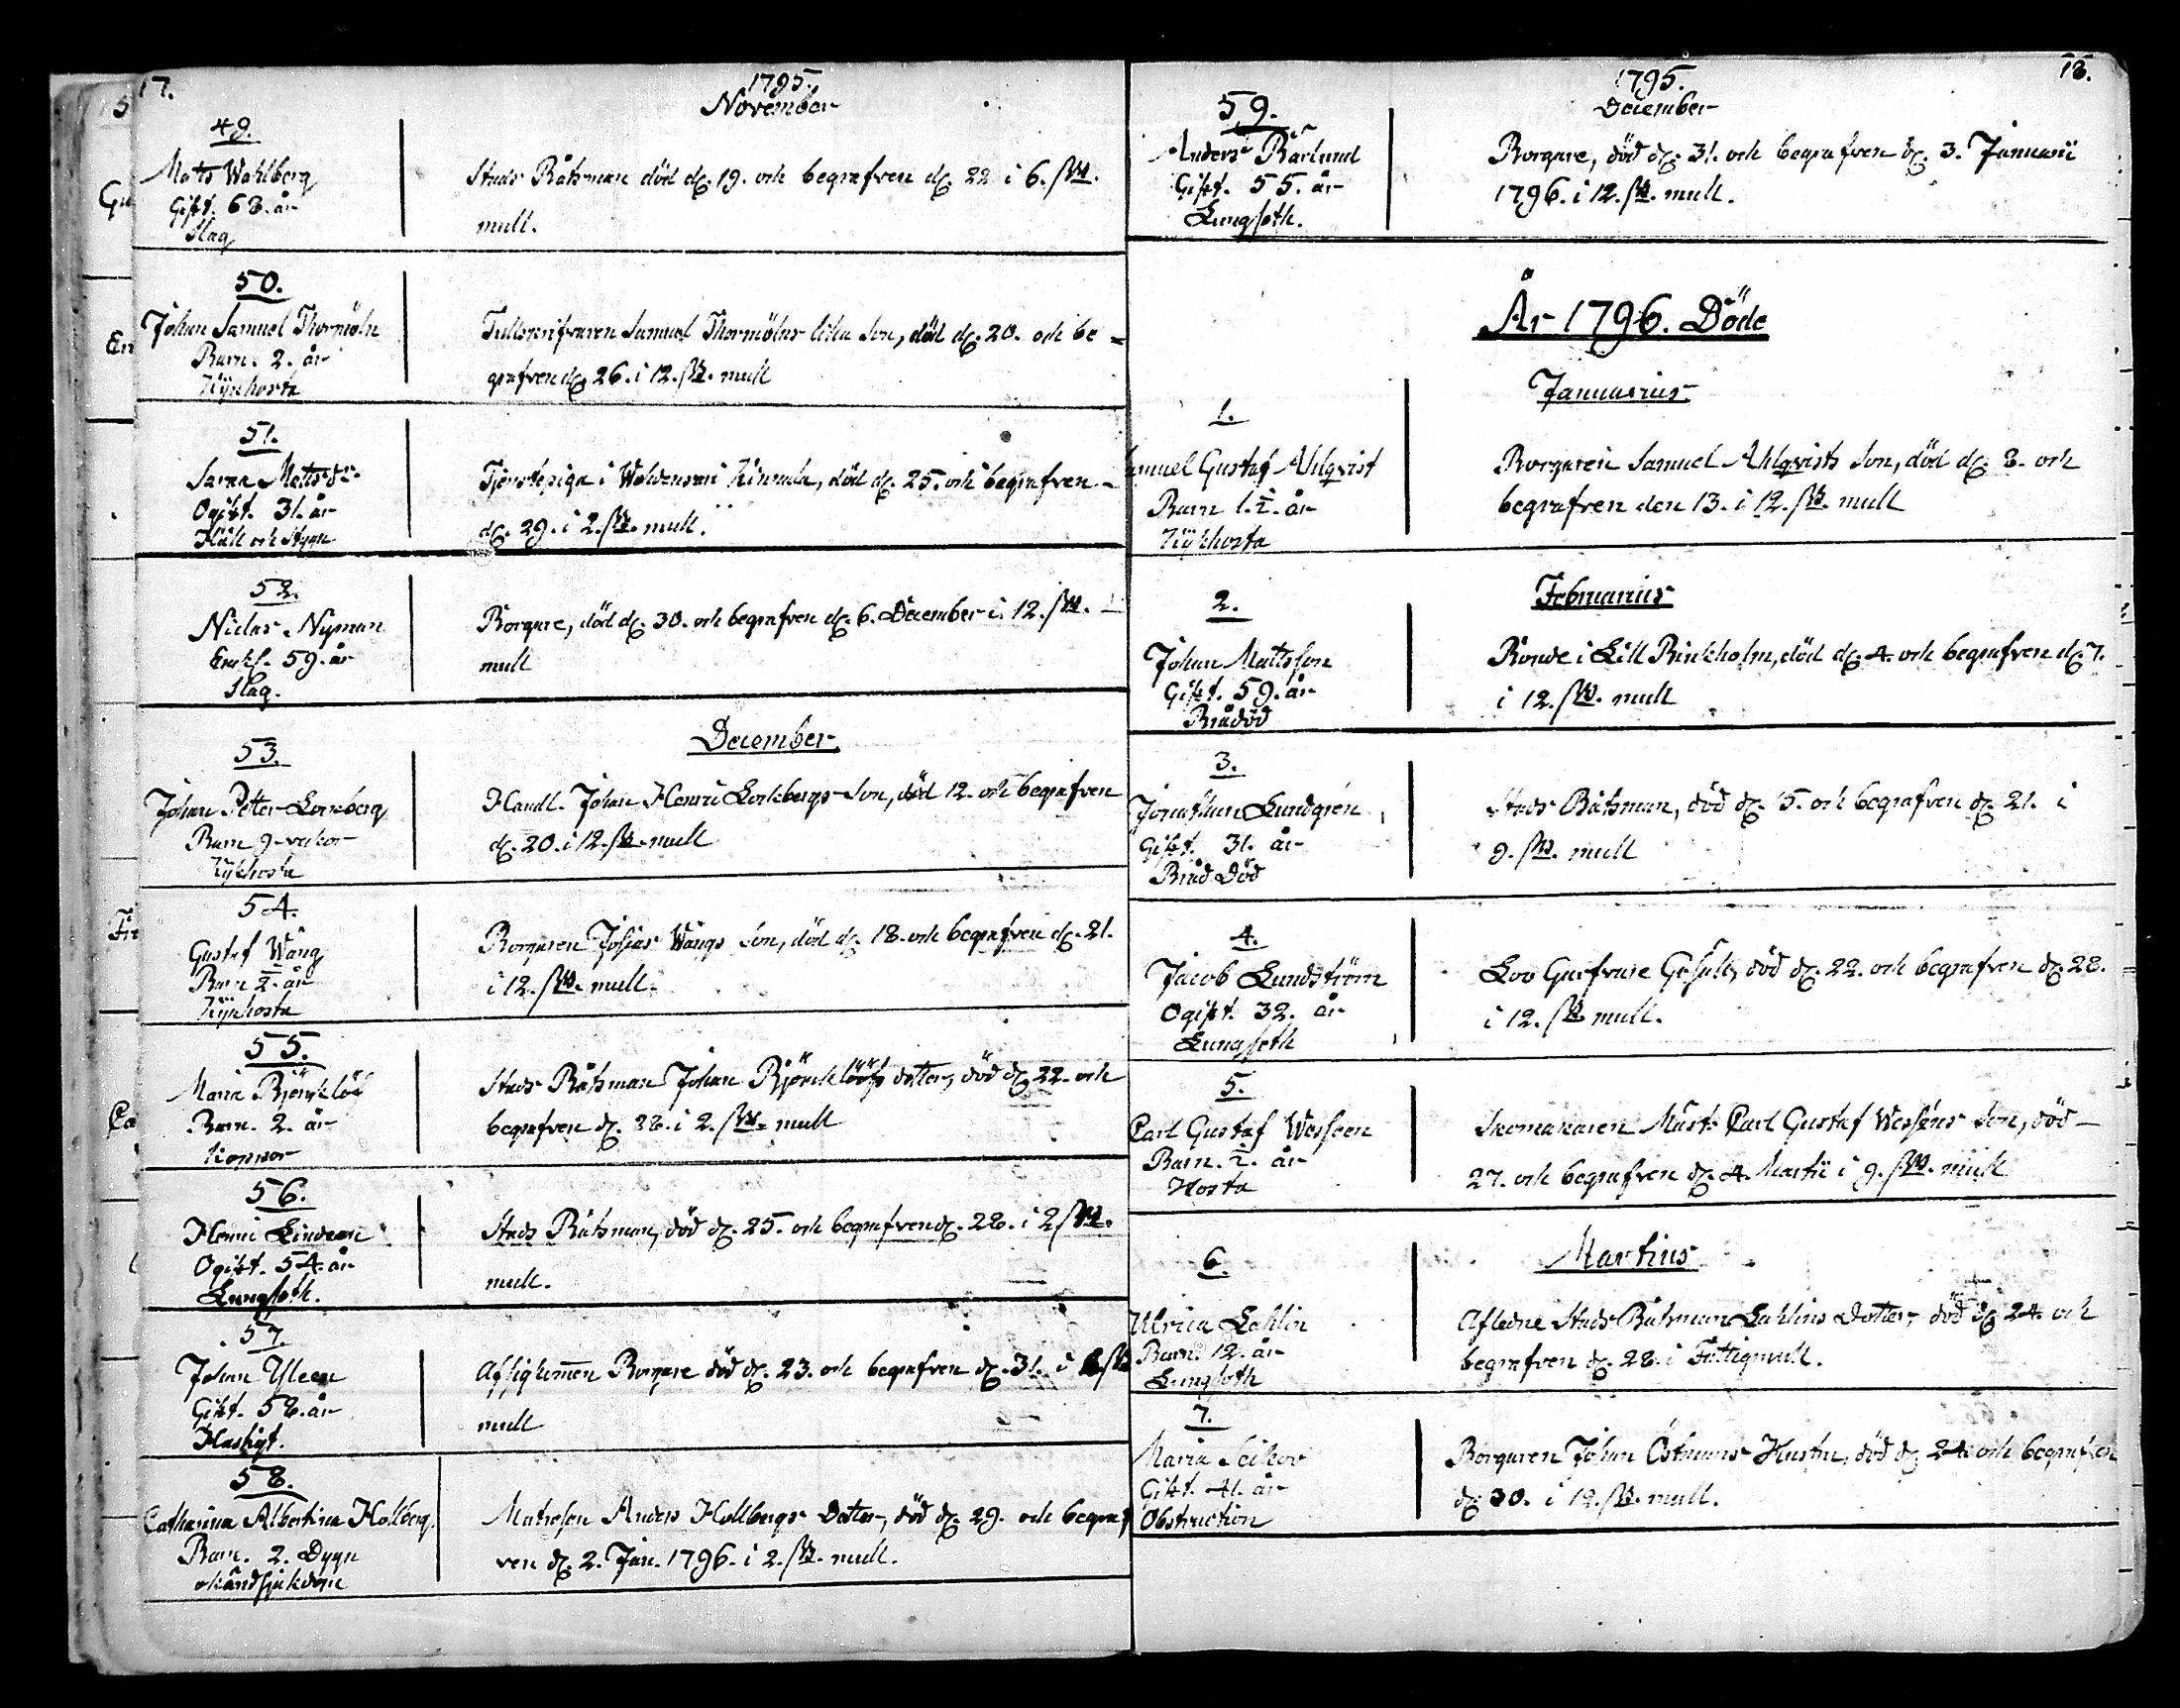 17.
1795.
November
49.
Matts Wahlberg
Gift. 68. år
Slag
Stads Båtsman död d. 19. och begrafven d. 22 i 6. skl.
mull.
50.
Johan Samuel Thormöln
Barn. 2. år
Kikhosta
Tullskrifvaren Samuel Thormölns lilla Son, död d. 20. och be=
grafven d. 26. i 12. skl. mull
51.
Sara Mattsdr
Ogift. 31. år
Håll och stygn
Tjenstepiga i, död d. 25. och begrafven
d. 29. i 2. skl. mull.
52.
Niclas Nyman
Enkl. 59. år
Slag.
Borgare, död d. 30. och begrafven d. 6. December i 12. skl.
mull
December
53.
Johan Petter
Barn 9 vekor
Kikhosta
Handl. Johan Henric Son, död 12. och begrafven
d. 20. i 12. skl. mull
54.
Gustaf Wång
Barn ½ år
Kikhosta
Borgaren Josias Wångs Son, död d. 18. och begrafven d. 21.
i 12. skl. mull.
55.
Maria Björklöf
Barn. 2. år
Koppor
Stads Båtsman Johan Björcklöfs dotter, död d. 22. och
begrafven d. 28. i 2. skl. mull
56.
Henric
Ogift. 54. år
Lungsoth.
Stads Båtsman, död d. 25. och begrafven d. 28. i 2 skl.
mull.
57.
Johan Yleen
Gift. 58. år
Hastigt.
Afsigkommen Borgare död d. 23. och begrafven d. 31. i skl
mull
58.
Catharina Albertina Hollberg.
Barn. 2. Dygn
okänd sjukdom
Matrosen Anders Hollbergs Dotter, död d. 29. och begraf
ven d. 2. Jan. 1796. i 2. skl. mull.
18.
1795.
December
59.
Anders Bärlund
Gift. 55. år
Lungsoth.
Borgare, död d. 31. och begrafven d. 3. Januarii
1796. i 12. skl. mull.
År 1796. Döde
Januarius
1.
Samuel Gustaf Ahlqvist
Barn 1.½. år
Kikhosta
Borgaren Samuel Ahlqvists Son, död d. 8. och
begrafven den 13. i 12. skl. mull
Februarius
2.
Johan Mattsson
Gift. 59. år
Brådöd
Bonde i Lill, död d. 4. och begrafven d. 7.
i 12. skl. mull
3.
Jonathan Lundgrén
Gift. 31. år
Bråd Död
Stads Båtsman, död d. 15. och begrafven d. 21. i
9. skl. mull
4.
Jacob Lundström
Ogift. 32. år
Lungsoth
Loo Garfvare Gesäll, död d. 22. och begrafven d. 28.
i 12. skl. mull.
5.
Carl Gustaf Wesseen
Barn. ½. år
Hosta
Skomakaren Mäst. Carl Gustaf Wesséns Son, död
27. och begrafven d. 4. Martii i 9. skl. mull
Martius
6.
Ulrica Lahlin
Barn. 12. år
Lungsoth
Afledne Stads Båtsman Lahlins Dotter, död d. 24 och
begrafven d. 28. i Fattigmull.
7.
Maria
Gift. 41. år
Obstruction
Borgaren Johan Östmans Hustru, död d. 24. och begrafven
d. 30. i 12. skl. mull.